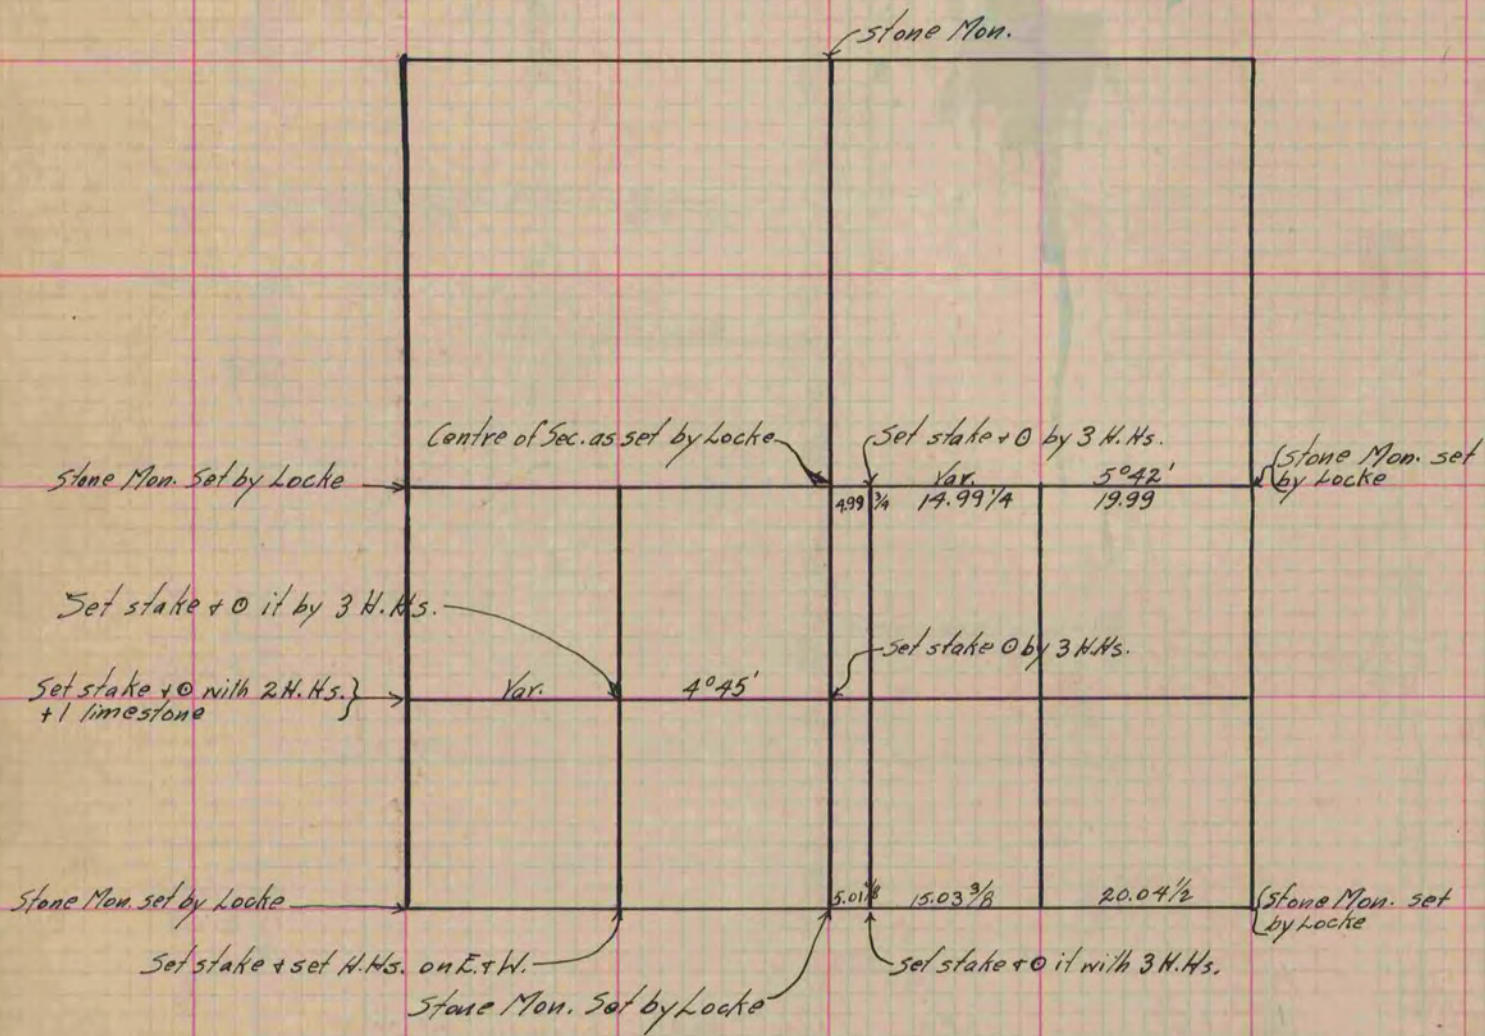 Stone Mon.
Centre of Sec. as set by Locke
Set stake & ⊙ by 3 H.Hs.
Stone Mon. Set by Locke
Var. 5°42'
Stone Mon. set
by Locke
4.99 3/4 14.99 1/4 19.99
Set stake & ⊙ it by 3 H.Hs.
Set stake ⊙ by 3 H.Hs.
Set stake & ⊙ with 2 H.Hs.}
+1 limestone
Var. 4°45'
Stone Mon. set by Locke
5.01 1/8 15.03 3/8 20.04 1/2
Stone Mon. set
by Locke
Set stake & set H.Hs. on E. & W.
Set stake & ⊙ it with 3 H.Hs.
Stone Mon. Set by Locke